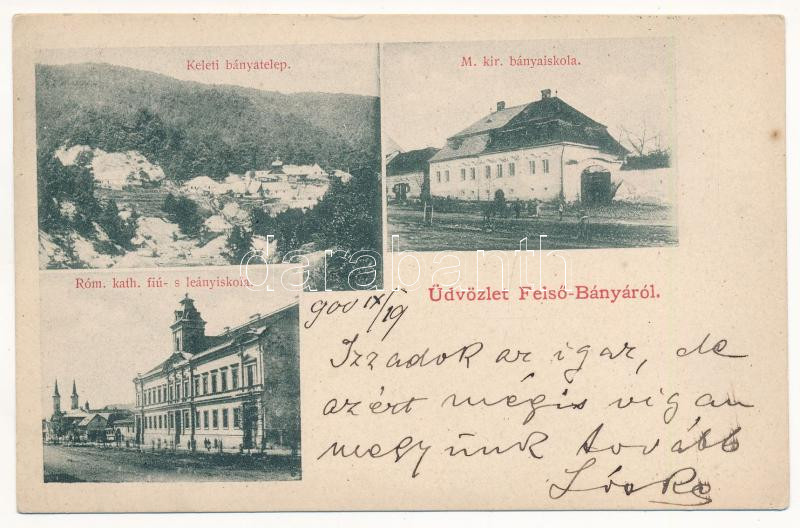 Keleti bányatelep.
M. kir. bányaiskola.
Róm. kath. fiú- s leányiskola.
Üdvözlet Felső-Bányáról.
900 IX/19
Izzadok az igaz, de
azért mégis vigan
megyünk tovább
darabanth